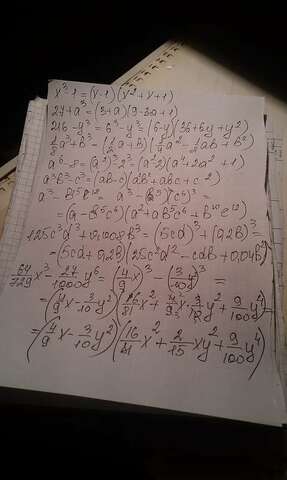 x³-1=(x-1)(x²+x+1)
27+a³=(3+a)(9-3a+1)
216-y³=6³-y³=(6-y)(36+6y+y²)
1/8a³+b³=(1/2a+b)(1/4a²-1/2ab+b²)
a⁶-8=(a²)³-2³=(a²-2)(a⁴+2a²+1)
a³b³-c³=(ab-c)(ab²+abc+c²)
a³-b¹⁵c¹²=a³-(b⁵)³(c⁶)³=
=(a-b⁵c⁶)(a²+ab⁵c⁶+b¹⁰c¹²)
125c³d³+0,008b³=(5cd)³+(0,2b)³=
=(5cd+0,2b)(25c²d²-cdb+0,04b²)
64/729x³-27/1000y⁶=(4/9x)³-(3/10y²)³=
=(4/9x-3/10y²)(16/81x²+4/9x·3/10y²+9/100y⁴)=
=(4/9x-3/10y²)(16/81x²+2/15xy²+9/100y⁴)